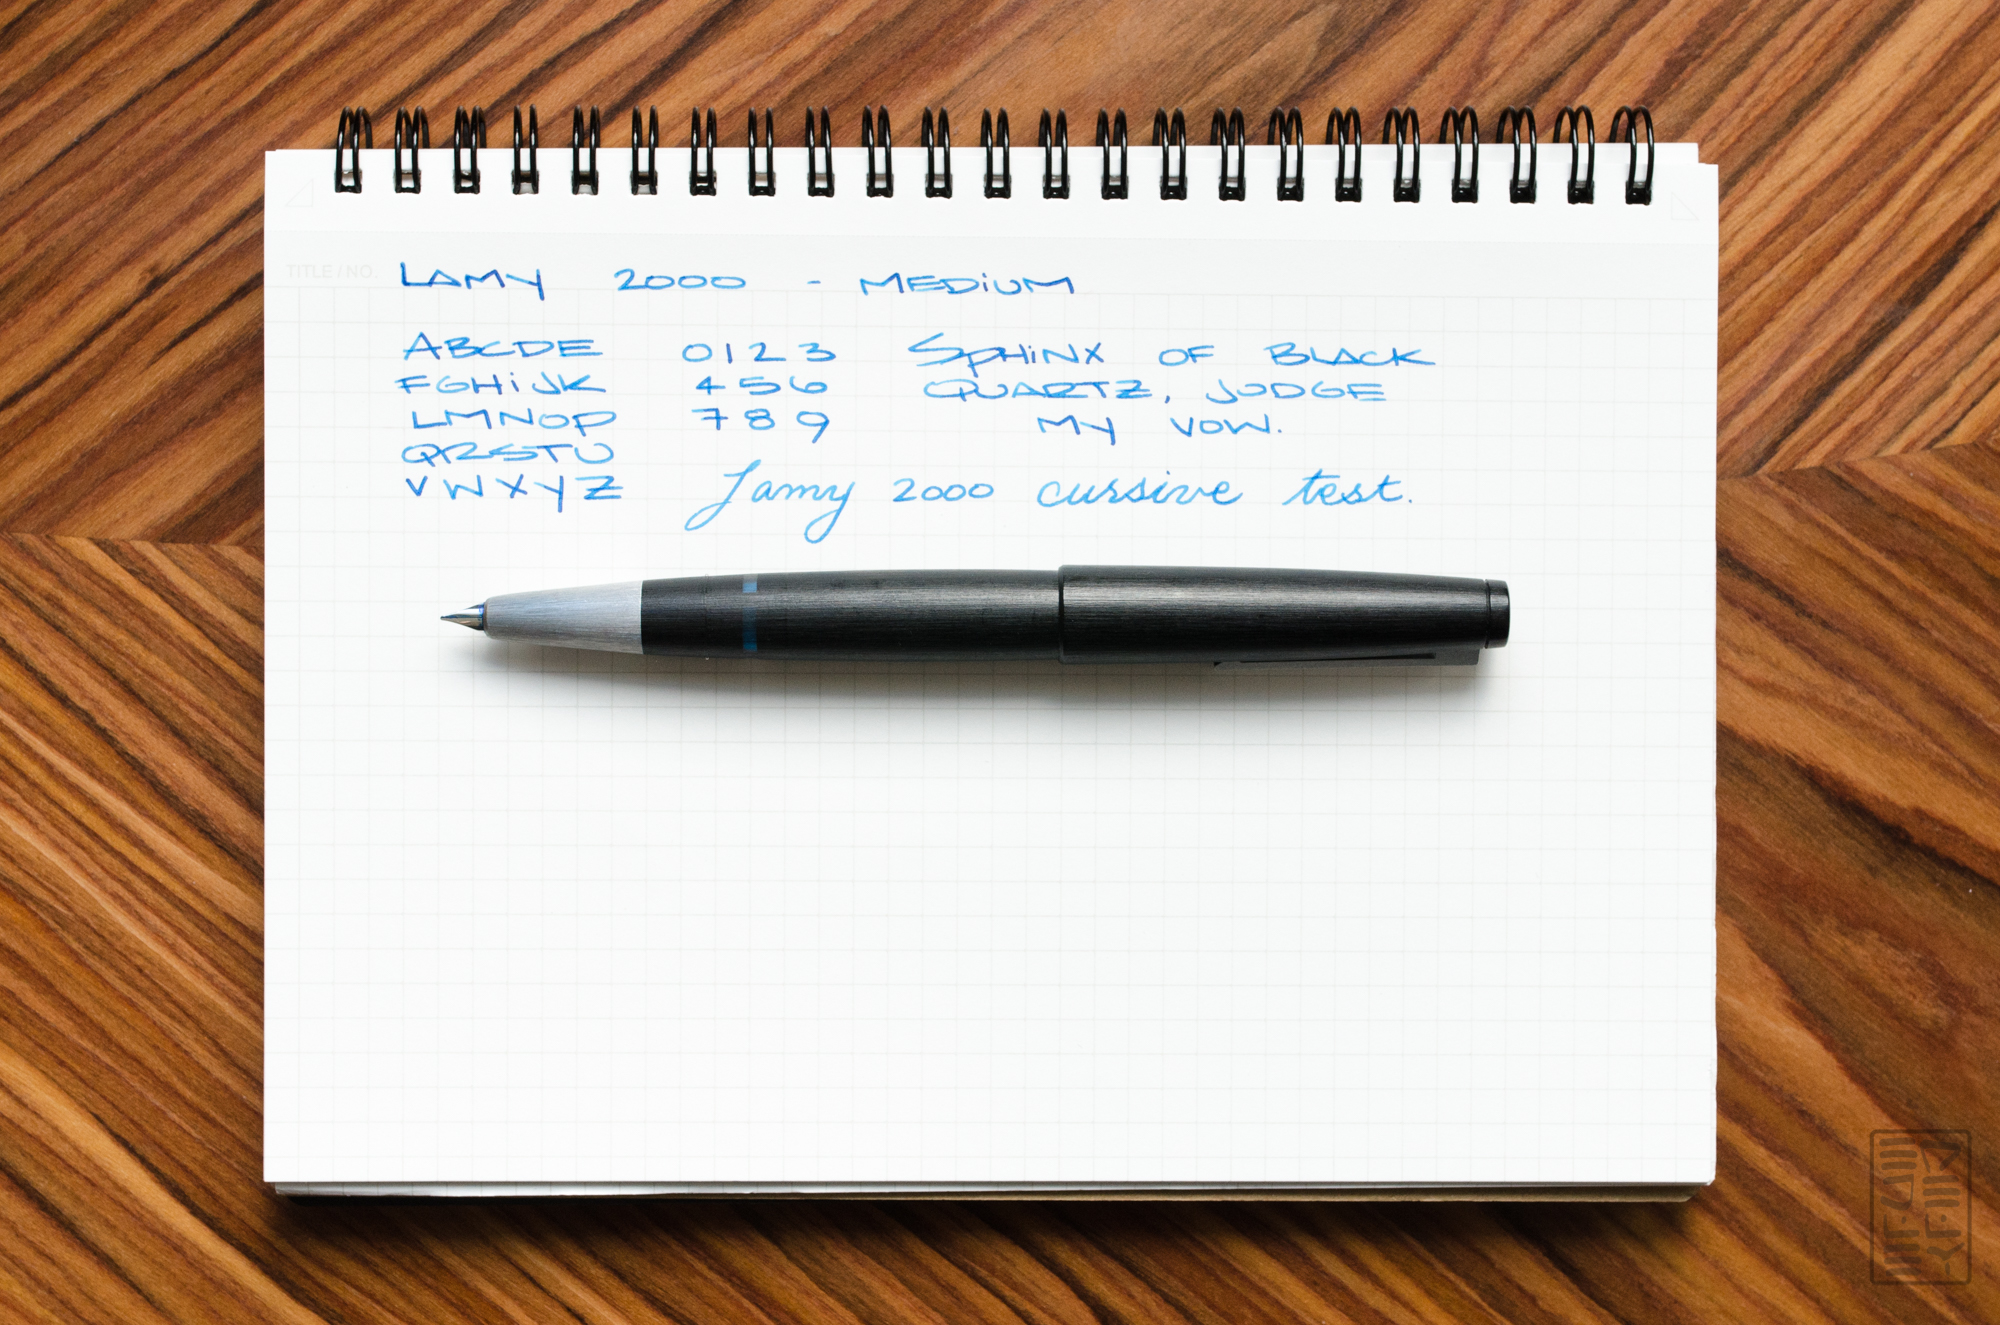 TITLE / NO.
LAMY 2000 - MEDIUM
ABCDE
FGHiJK
LMNOP
QRSTU
VWXYZ
0123
456
789
SPHiNX OF BLACK
QUARTZ, JUDGE
MY VOW.
Lamy 2000 cursive test.